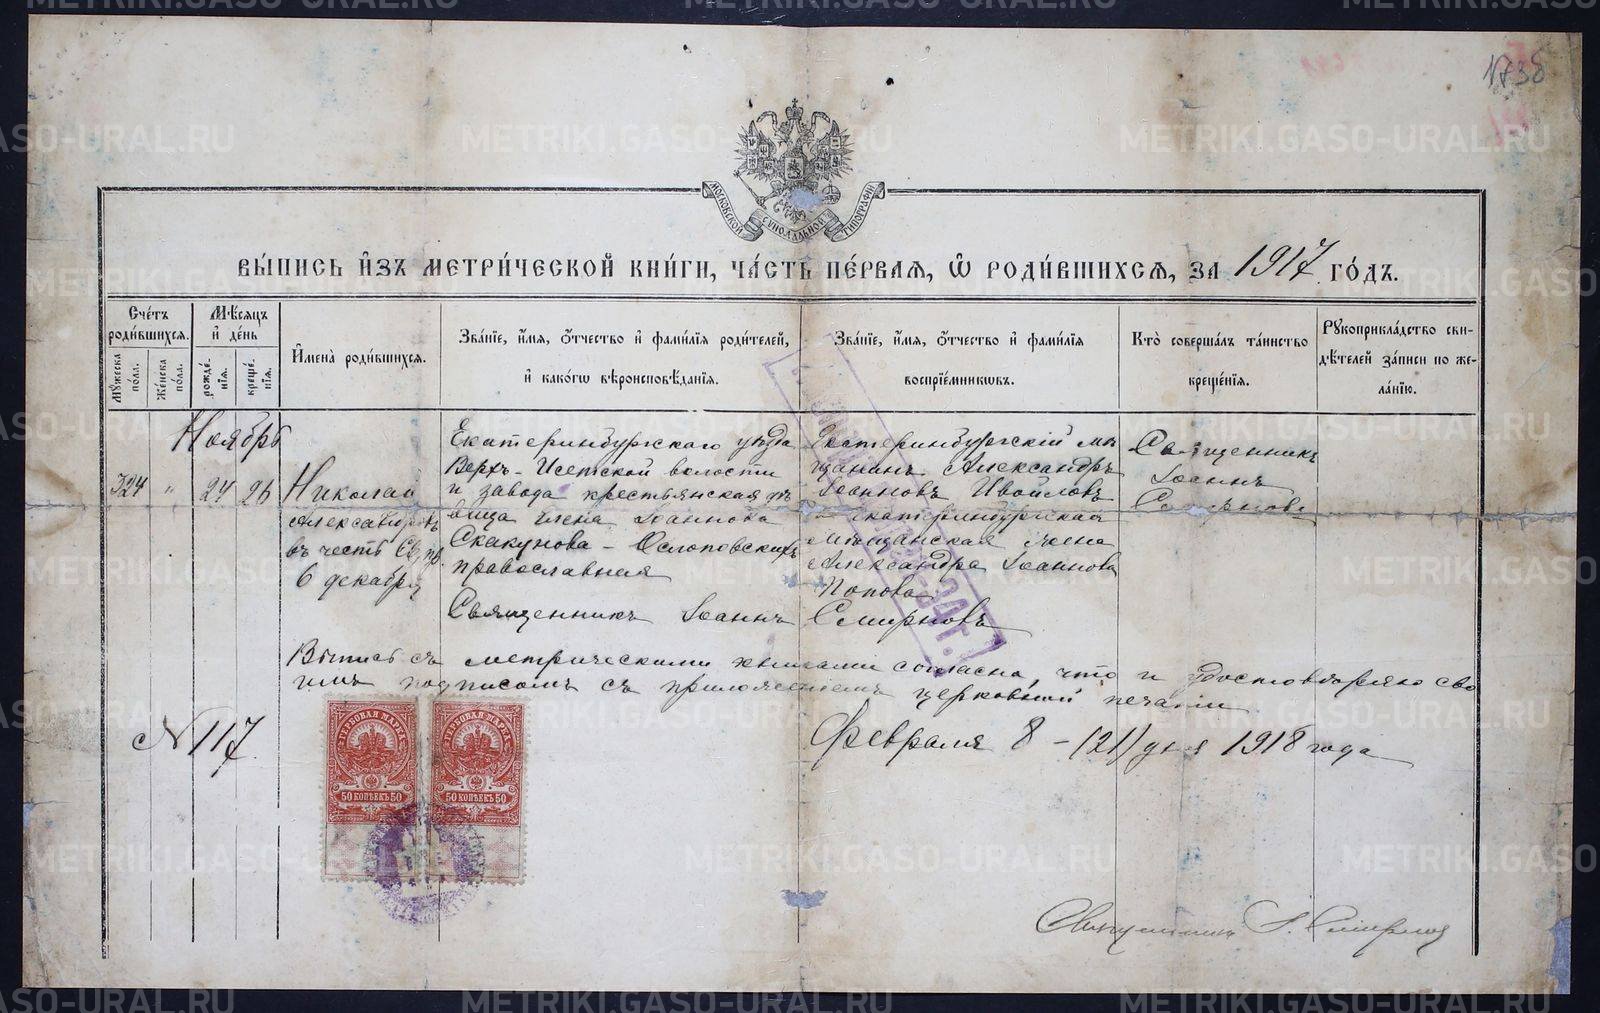 1738
МОСКОВСКОЙ СУНОДАЛЬНОЙ ТИПОГРАФІИ
ВЫ́ПИСЬ И҆ЗЪ МЕТРИ́ЧЕСКОЙ КНИ́ГИ, ЧА́СТЬ ПЕ́РВАѦ, Ѡ҆ РОДИ́ВШИХСѦ, ЗА 1917 ГО́ДЪ.
Сче́тъ роди́вшихсѧ.
Мꙋ́жеска по́ла.
Же́нска по́ла.
Мѣ́сѧцъ и҆ де́нь
рожде́нїѧ.
креще́нїѧ.
И҆мена̀ роди́вшихсѧ.
Зва́нїе, и҆́мѧ, ѻ҆́тчество и҆ фами́лїѧ роди́телей,
и҆ како́гѡ вѣроисповѣ́данїѧ.
Зва́нїе, и҆́мѧ, ѻ҆́тчество и҆ фами́лїѧ
воспрїе́мникѡвъ.
Кто̀ соверша́лъ та́инство
креще́нїѧ.
Рꙋкоприкла́дство сви-
дѣ́телей за́писи по же-
ла́нїю.
Ноябрь
324 " 24 26
Николай
Александровъ
въ честь Св, пр.
6 декабря
Екатеринбургскаго уѣзда
Верхъ-Исетской волости
и завода крестьянская дѣ
вица Елена Іоаннова
Скакунова - Ослоповскихъ
православная
Священникъ Іоаннъ Смирновъ
Екатеринбургскій мѣ
щанинъ Александръ
Іоанновъ Ивойловъ
и Екатеринбургская
мѣщанская жена
Александра Іоаннова
Попова
Священникъ
Іоаннъ
Смирновъ
Выпись съ метрическими книгами согласна, что и удостовѣряю сво
имъ подписомъ съ приложеніемъ церковной печати
N 117.
Февраля 8 - (21) дня 1918 года
ГЕРБОВАЯ МАРКА
50 КОПѢЕКЪ 50
ГЕРБОВАЯ МАРКА
50 КОПѢЕКЪ 50
Священникъ І. Смирновъ
METRIKI.GASO-URAL.RU